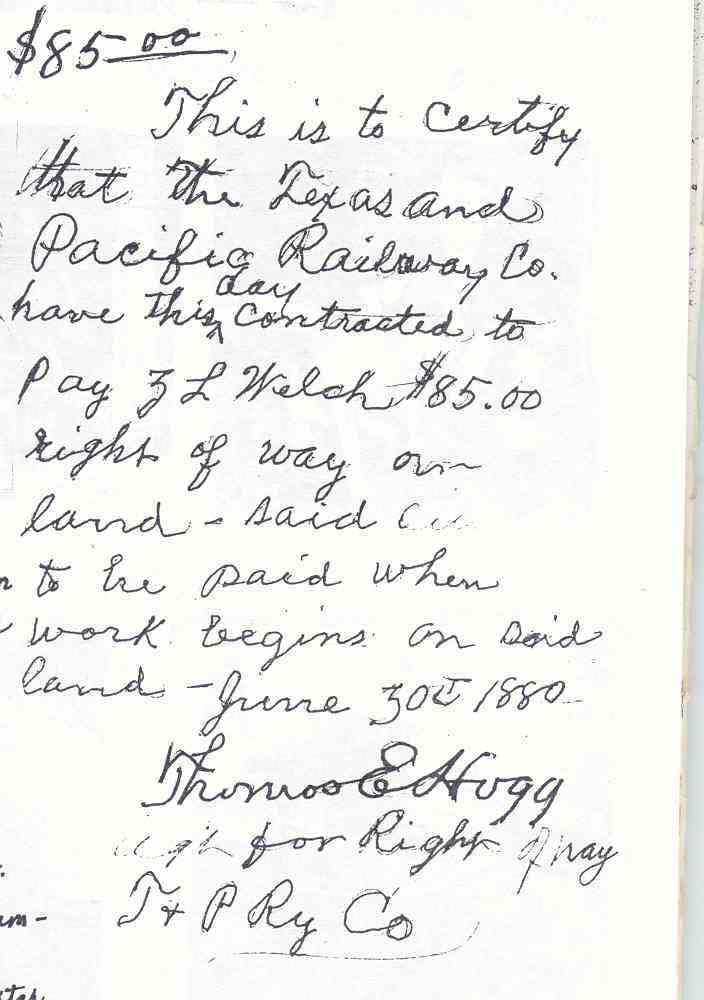 $85.00
This is to certify
that the Texas and
Pacific Railway Co.
day
have this ^ contracted to
Pay Z L Welch $85.00
right of way on
land - said
to be paid when
work begins on said
land - June 30t 1880
Thomas E Hogg
for Right of way
T & P Ry Co